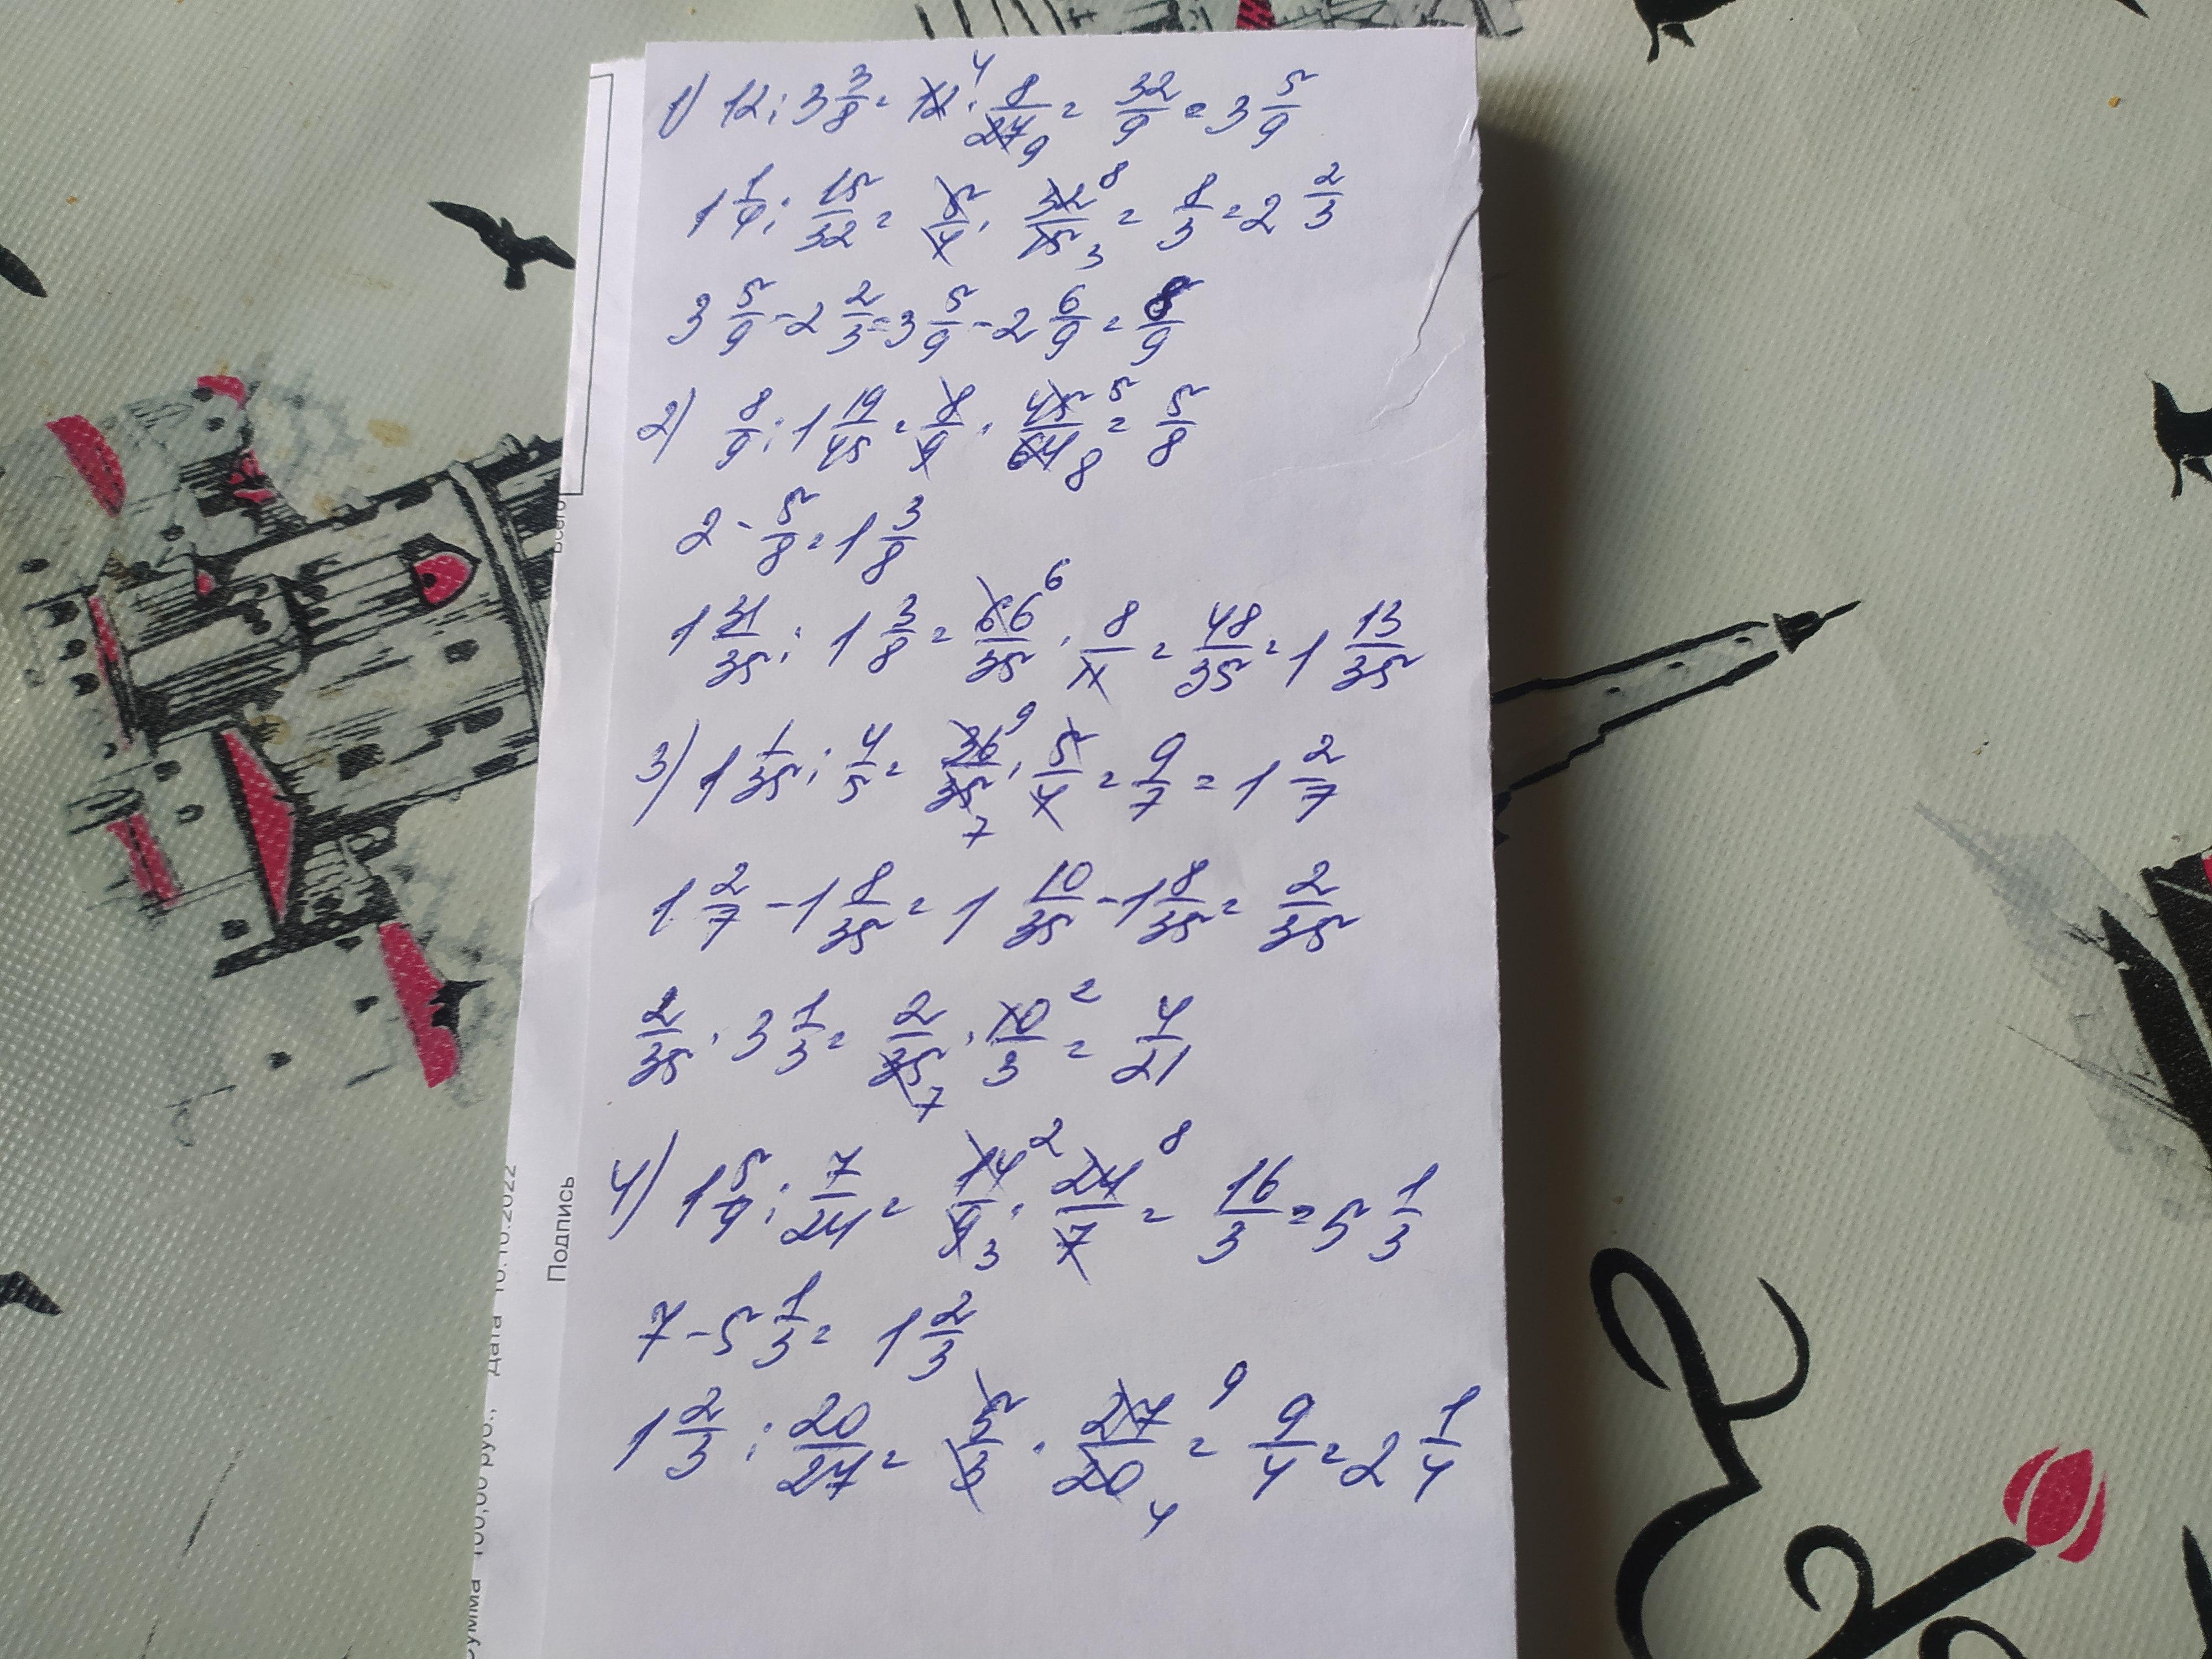 1) 12 : 3 3/8 = 12 4 · 8/27 9 = 32/9 = 3 5/9
1 1/4 : 15/32 = 5/4 · 32 8/15 3 = 8/3 = 2 2/3
3 5/9 - 2 2/3 = 3 5/9 - 2 6/9 = 8/9
2) 8/9 : 1 19/45 = 8/9 · 45 5/64 8 = 5/8
2 - 5/8 = 1 3/8
1 31/35 : 1 3/8 = 66 6/35 · 8/11 = 48/35 = 1 13/35
3) 1 1/35 : 4/5 = 36 9/35 7 · 5/4 = 9/7 = 1 2/7
1 2/7 - 1 8/35 = 1 10/35 - 1 8/35 = 2/35
2/35 · 3 1/3 = 2/35 7 · 10 2/3 = 4/21
4) 1 5/9 : 7/24 = 14 2/9 3 · 24 8/7 = 16/3 = 5 1/3
7 - 5 1/3 = 1 2/3
1 2/3 : 20/27 = 5/3 · 27 9/20 4 = 9/4 = 2 1/4
Всего
Подпись